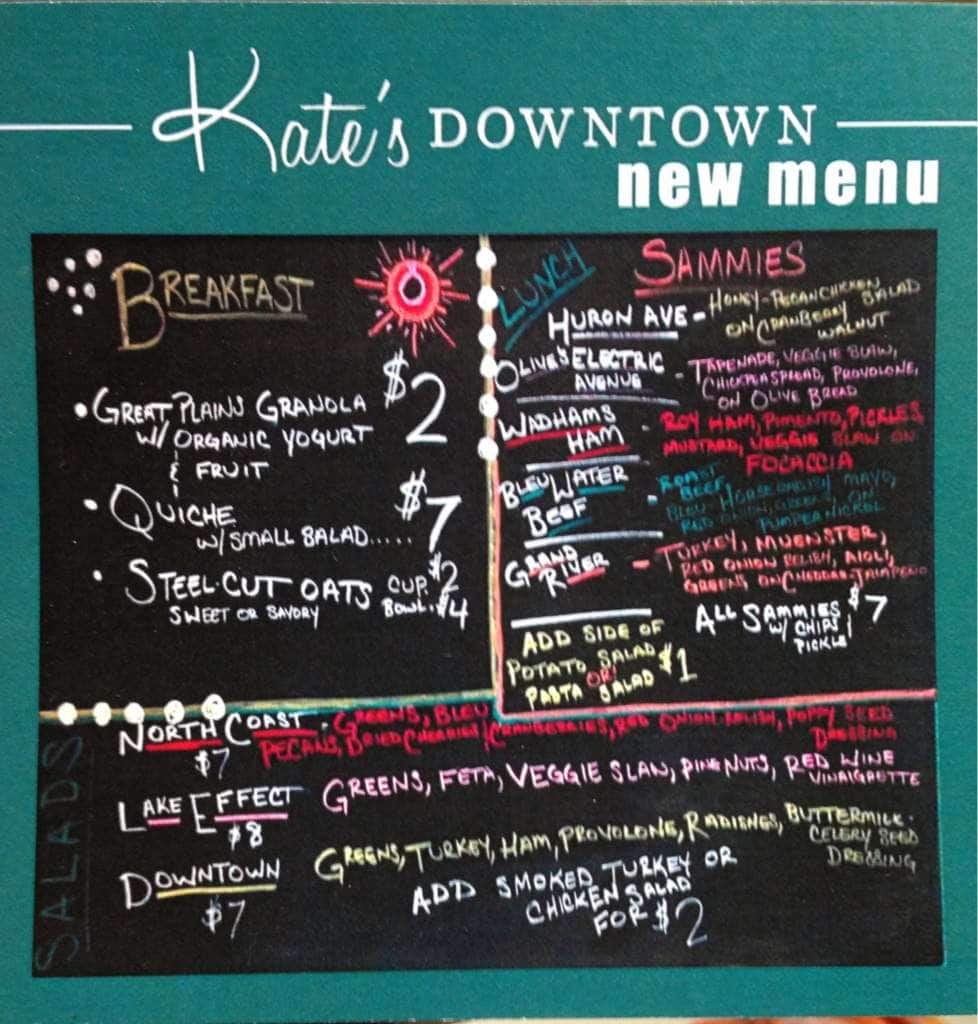 Kate's DOWNTOWN
new menu
BREAKFAST
• GREAT PLAINS GRANOLA $2
W/ ORGANIC YOGURT
& FRUIT
• QUICHE $7
W/ SMALL SALAD.....
• STEEL-CUT OATS CUP. $2
SWEET OR SAVORY BOWL. $4
LUNCH
SAMMIES
HURON AVE - HONEY-PECAN CHICKEN SALAD
ON CRANBERRY
WALNUT
OLIVE'S ELECTRIC
AVENUE - TAPENADE, VEGGIE SLAW,
CHICKPEA SPREAD, PROVOLONE,
ON OLIVE BREAD
WADHAMS
HAM - ROY HAM, PIMENTO, PICKLES,
MUSTARD, VEGGIE SLAW ON
FOCACCIA
BLEU WATER
BEEF - ROAST
BEEF, BLEU HORSERADISH MAYO,
RED ONION, GREENS, ON
PUMPERNICKEL
GRAND
RIVER - TURKEY, MUENSTER,
RED ONION RELISH, AIOLI,
GREENS ON CHEDDAR-JALAPEÑO
ALL SAMMIES $7
W/ CHIPS &
PICKLE
ADD SIDE OF
POTATO SALAD $1
OR
PASTA SALAD
SALADS
NORTH COAST - GREENS, BLEU
$7 PECANS, DRIED CHERRIES/CRANBERRIES, RED ONION RELISH, POPPY SEED
DRESSING
LAKE EFFECT GREENS, FETA, VEGGIE SLAW, PINE NUTS, RED WINE
$8 VINAIGRETTE
DOWNTOWN GREENS, TURKEY, HAM, PROVOLONE, RADISHES, BUTTERMILK-
$7 CELERY SEED
DRESSING
ADD SMOKED TURKEY OR
CHICKEN SALAD
FOR $2